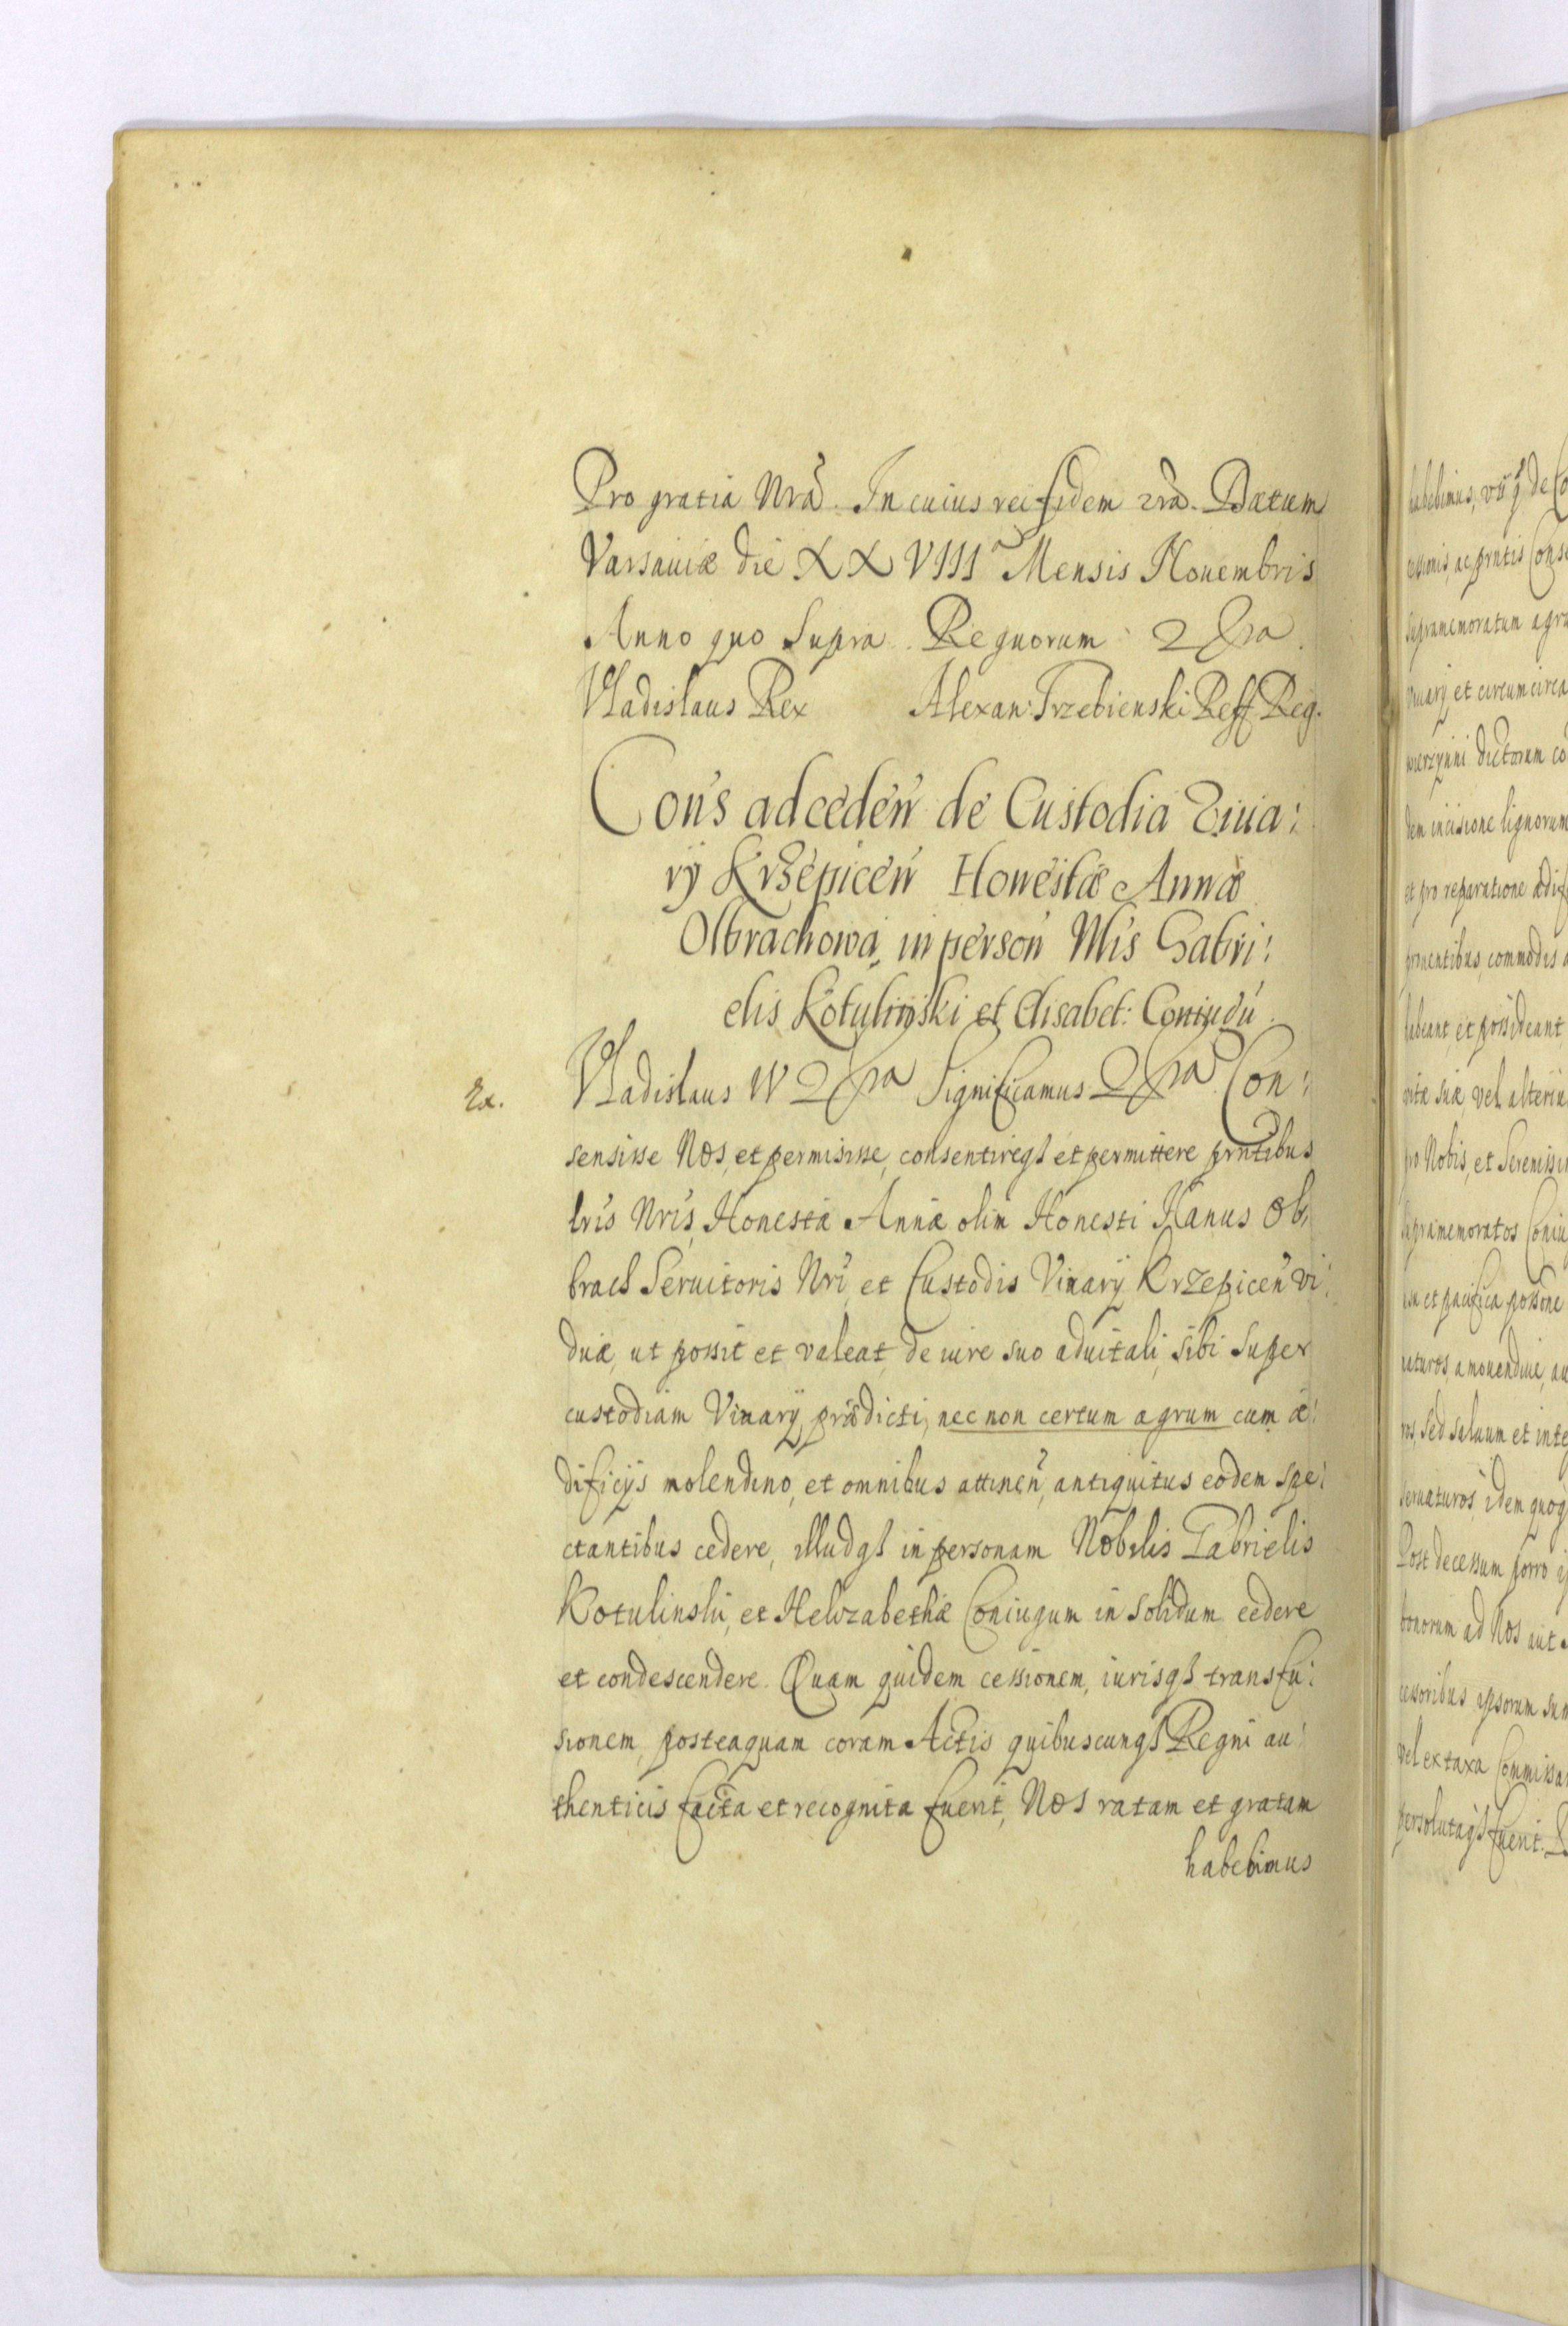 Pro gratia Nrã. In cuius rei fidem 2rã. Datum
Varsaviæ die XXVIIIa Mensis Novembris
Anno quo Supra. Regnorum 2 &ra.
Vladislaus Rex Alexan: Trzebienski Reff Reg.
Cons ad ceden de Custodia Viva:
rÿ Krzepicen Honestæ Annæ
Olbrachowa, in person Nlis Gabri:
elis Kotulinski et Elisabet: Coniugũ.
Ex. Vladislaus IV 2 &ra Significamus 2 &ra. Con:
sensisse Nos, et permisisse, consentireqs et permittere prntibus
lris Nris, Honestæ Annæ olim Honesti Hanus Ol,
brach Servitoris Nri, et Custodis Vivarÿ Krzepicen vi:
duæ, ut possit et valeat, de iure suo advitali, sibi super
custodiam Vivarÿ, prædicti, nec non certum agrum cum æ:
dificÿs molendino, et omnibus attinen, antiquitus eodem spe:
ctantibus cedere, illudqs in personam Nobilis Gabrielis
Kotulinski, et Helizabethæ Coniugum in solidum cedere
et condescendere. Quam quidem cessionem, iurisqs transfu:
sionem, posteaquam coram Actis quibuscunqs Regni au:
thenticis facta et recognita fuerit, Nos ratam et gratam
habebimus
habebimus,
et circumcirca
dictorum co
incisione lignorum
et pro reparatione ædif
commodis
habeant, et possideant
vitæ suæ, vel alteriu
pro Nobis, et Serenissi
supramemoratos Coniu
et pacifica possone
amovendive, au
ros, sed salvum et inte
servaturos, idem quoq
Post decessum porro
bonorum ad Nos aut
cessoribus ipsorum
vel ex taxa Commissar
persolutaqs fuerit.